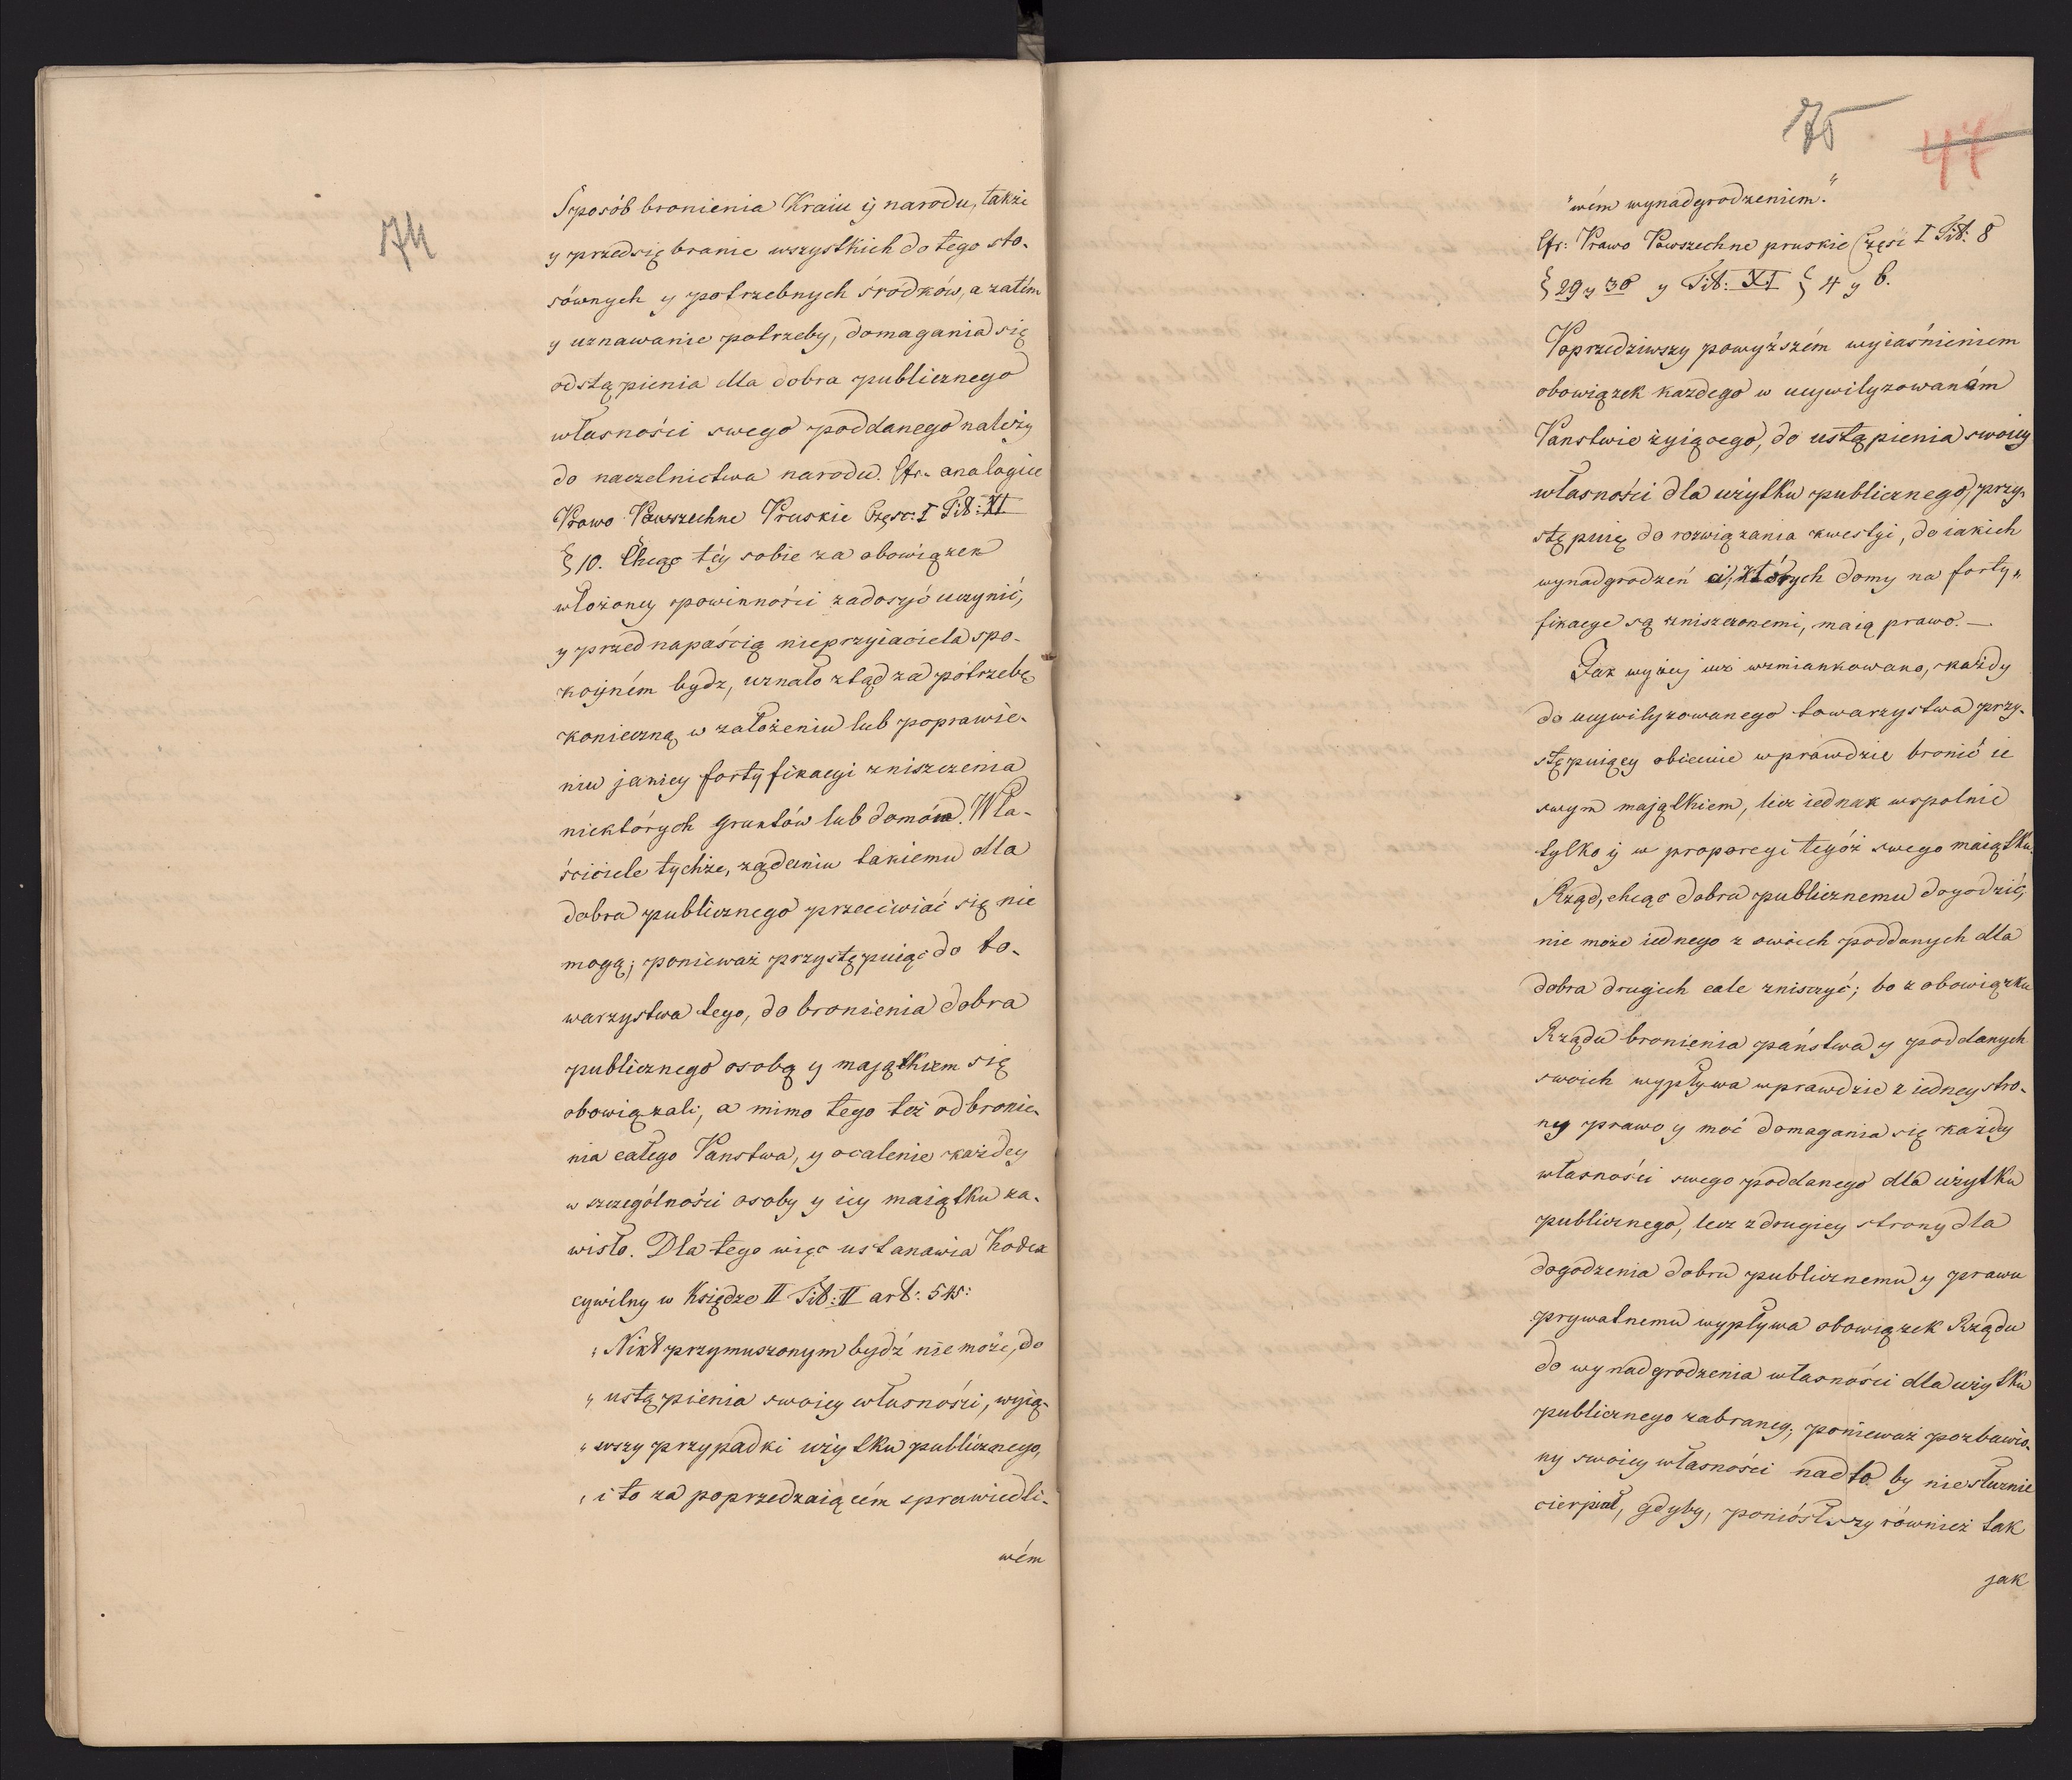 74
Sposób bronienia Kraiu ÿ narodu, także
y przedsiębranie wszystkich do tego sto-
sównych y potrzebnych środków, a zatém
y uznawanie potrzeby, domagania się
odstąpienia dla dobra publicznego
własności swego poddanego należy
do naczelnictwa narodu. Cfr. analogice
Prawo Powszechne Pruskie Częsc: I Tit: XI.
§ 10. Chcąc téy sobie za obowiązek
włożoney powinności zadosyć uczynić,
y przed napaścią nieprzyiaciela spo-
koÿném bydz, uznało ztąd za potrzebę
konieczną w założeniu lub poprawie-
niu jakiey fortyfikacyi zniszczenia
niektórych gruntów lub domów. Wła-
ściciele tychże, żądaniu takiemu dla
dobra publicznego przeciwiać się nie
mogą; ponieważ przystępuiąc do to-
warzystwa tego, do bronienia dobra
publicznego osobą y majątkiem się
obowiązali, a mimo tego też od bronie-
nia całego Panstwa, y ocalenie każdey
w szczególności osoby y iey maiątku za-
wisło. Dla tego więc ustanawia Kodex
cywilny w Księdze II Tit: II art: 545:
„Nikt przymuszonym bydź nie może, do
„ustąpienia swoiey własności, wyią-
„wszy przypadki użytku publicznego,
„i to za poprzedzaiącém sprawiedli-
wém
75 47
„wém wynadgrodzeniem.“
Cfr: Prawo Powszechne pruskie Częsć I Tit: 8
§ 29 y 30 y Tit: XI § 4 y 6.
Poprzedziwszy powyższém wyiaśnieniem
obowiązek każdego w ucywilyzowaném
Panstwie żyiącego, do ustąpienia swoiey
własności dla użytku publicznego, przy-
stępuię do rozwiązania kwestyi, do iakich
wynadgrodzeń ci, których domy na forty„
fikacye są zniszczonemi, maią prawo. —
Jak wyżey iuż wzmiankowano, każdy
do ucywilyzowanego towarzystwa przy-
stępuiący obiecuie wprawdzie bronić ie
swym majątkiem, lecz iednak wspolnie
tylko ÿ w proporcyi tegóż swego maiątku.
Rząd, chcąc dobru publicznemu dogodzić,
nie może iednego z swoich poddanych dla
dobra drugich cale zniszczyć; bo z obowiązku
Rządu bronienia państwa y poddanych
swoich wypływa wprawdzie z iedney stro-
ny prawo y moc domagania się każdy
własności swego poddanego dla użytku
publicznego, lecz z drugiey strony dla
dogodzenia dobru publicznemu y prawu
prywatnemu wypływa obowiązek Rządu
do wynadgrodzenia własności dla użytku
publicznego zabraney; ponieważ pozbawio-
ny swoiey własności nadto by niesłusznie
cierpiał, gdyby, poniósłszy również tak
jak